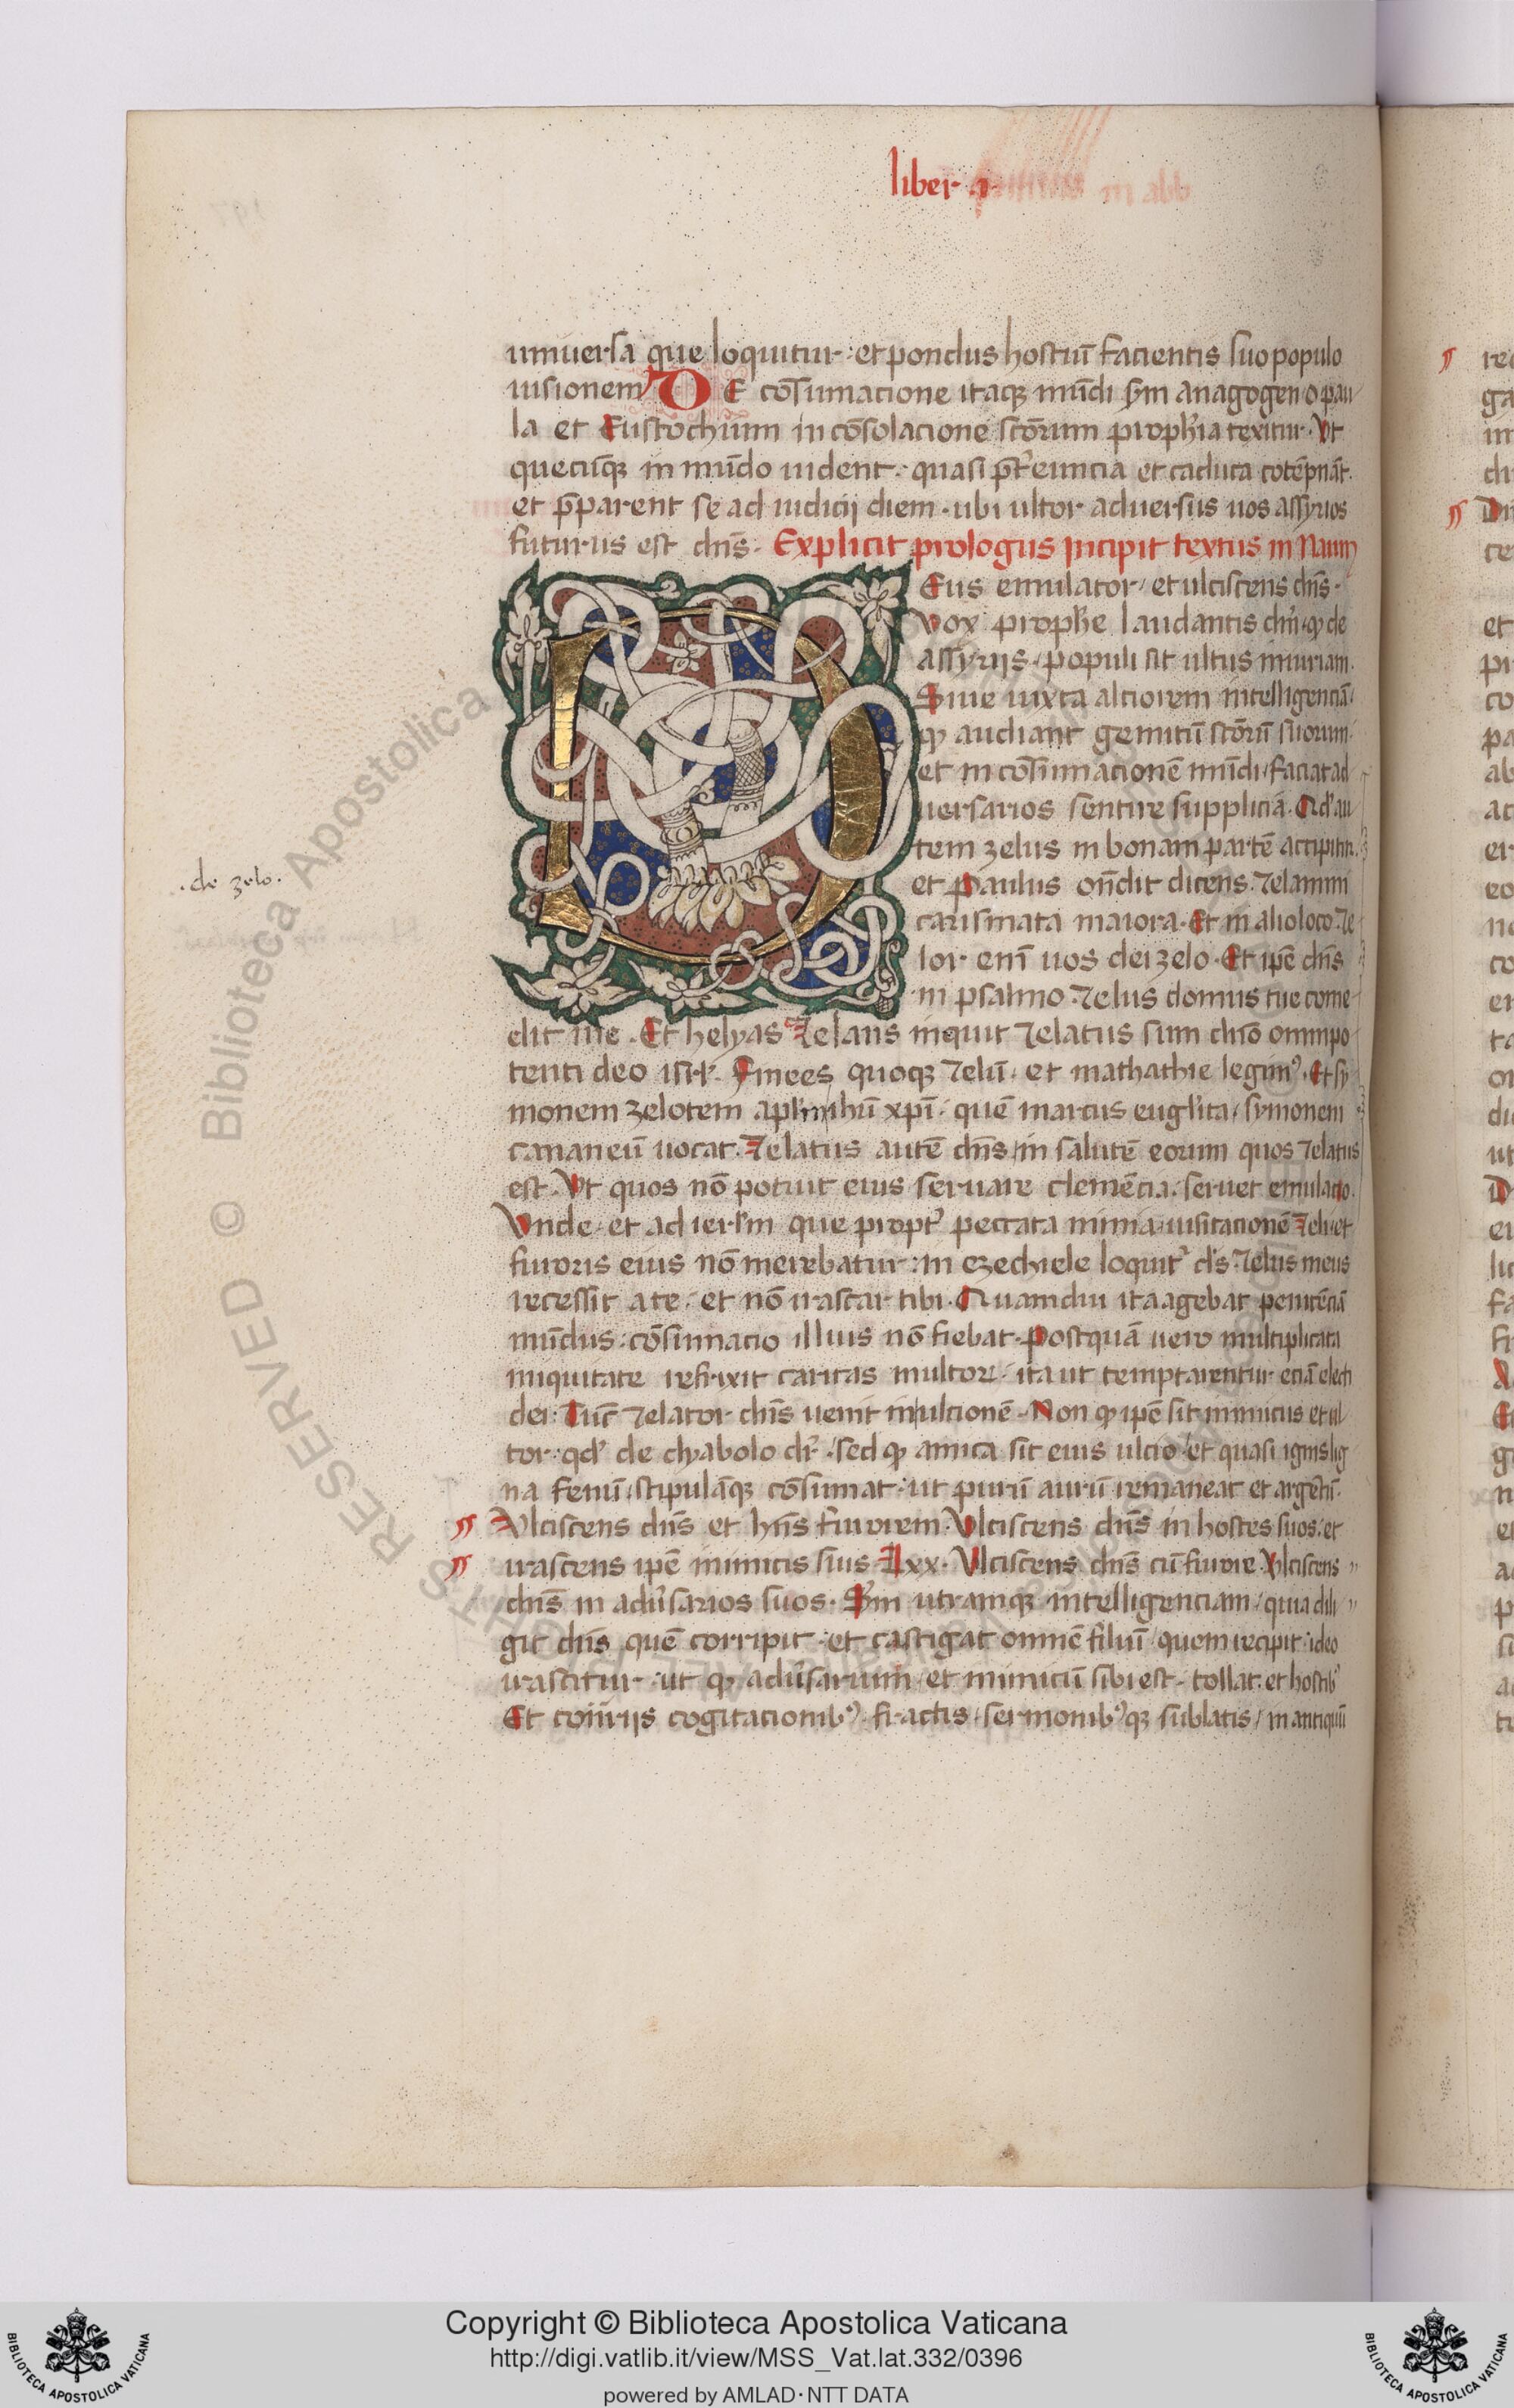 liber · 1·
uniuersa que loquitur · et pondus hostiū facientis suo populo
uisionem DE cōsumacione itaqꝫ mūdi s̄m anagogen / o pau
la et Eustochium in cōsolacione scōrum prophīa texitur · Vt
quecūqꝫ in mūdo uident · quasi p̄t̄euncia et caduca cōtēpnāt ·
et p̄parent se ad iudicij diem · ubi ultor aduersus uos assyrios
futurus est dn̄s · Explicit prologus Incipit textus in Naum
Eus emulator / et ulciscens dn̄s ·
Vox prophē laudantis dn̄i · qꝫ de
assyrijs / populi sit ultus iniuriam ·
Siue iuxta altiorem intelligenciā ·
qꝫ audiant gemitū scōrū suorum ·
et in cōsumacionē mūdi / faciat ad
uersarios sentire supplicia · Qd' au
tem zelus in bonam partē accipitur ·
et Paulus on̄dit dicens · Zelamini
carismata maiora · Et in alio loco · Ze
lor enī uos dei zelo · Et ip̄e dn̄s
in psalmo · Zelus domus tue come
dit me · Et helyas Zelans inquit Zelatus sum dn̄o omnipo
tenti deo isrl' · Finees quoqꝫ Zelū · et mathathie legim' · Et sy
monem zelotem ihū xp̄i · quē marcus euglīsta / symonem
cananeū uocat · Zelatus autē dn̄s / in salutē eorum quos Zelatus
est · Vt quos nō potuit eius seruare clemēcia · seruet emulacio ·
Vnde · et ad ierl̄m que propt' peccata nimia uisitacionē Zeli et
furoris eius nō merebatur : in ezechiele loquit' dn̄s · Zelus meus
recessit a te · et nō irascar tibi · Quamdiu ita agebat penitēciā
mūdus : cōsumacio illius nō fiebat · Postquā uero multiplicata
iniquitate refrixit caritas multoꝝ · ita ut temptarentur eciā electi
dei : Tūc Zelator dn̄s uenit in ulcionē · Non qꝫ ip̄e sit inimicus et ul
tor · qd' de dyabolo dr̄ · sed qꝫ amica sit eius ulcio / et quasi ignis lig
na fenū / stipulāqꝫ cōsumat · ut purū aurū remaneat et argētū ·
Vlciscens dn̄s et hn̄s furorem · Vlciscens dn̄s in hostes suos · et
irascens ip̄e inimicis suis · Lxx · Vlciscens dn̄s cū furore · Vlciscens
dn̄s in aduersarios suos · S̄m utramqꝫ intelligenciam / quia dili
git dn̄s quē corripit · et castigat omnē filiū / quem recipit · ideo
irascitur · ut qꝫ aduersarium / et inimicū sibi est · tollat · et hostib'
Et cogitacionib' · fractis / sermonib'qꝫ sublatis / in antiquū
· de zelo ·
Biblioteca Apostolica
© RESERVED
Copyright © Biblioteca Apostolica Vaticana
http://digi.vatlib.it/view/MSS_Vat.lat.332/0396
powered by AMLAD·NTT DATA
BIBLIOTECA APOSTOLICA VATICANA
BIBLIOTECA APOSTOLICA VATICANA